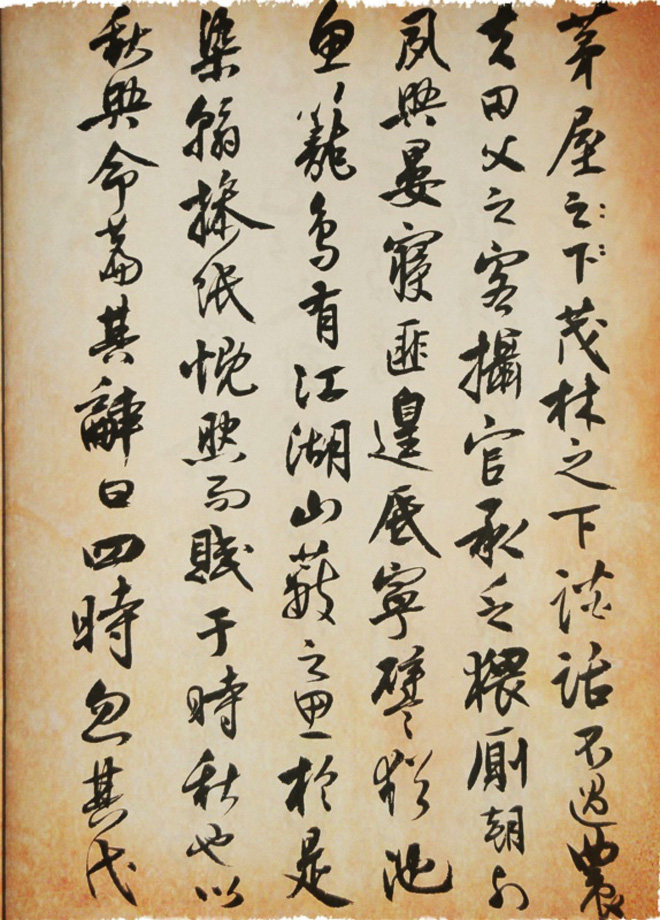 茅屋之下茂林之下談話不過農
夫田父之客攝官承乏猥廁朝列
夙興晏寢匪遑底寧譬猶池
魚籠鳥有江湖山藪之思於是
染翰操紙慨然而賦于時秋也以
秋興命篇其辭曰四時忽其代